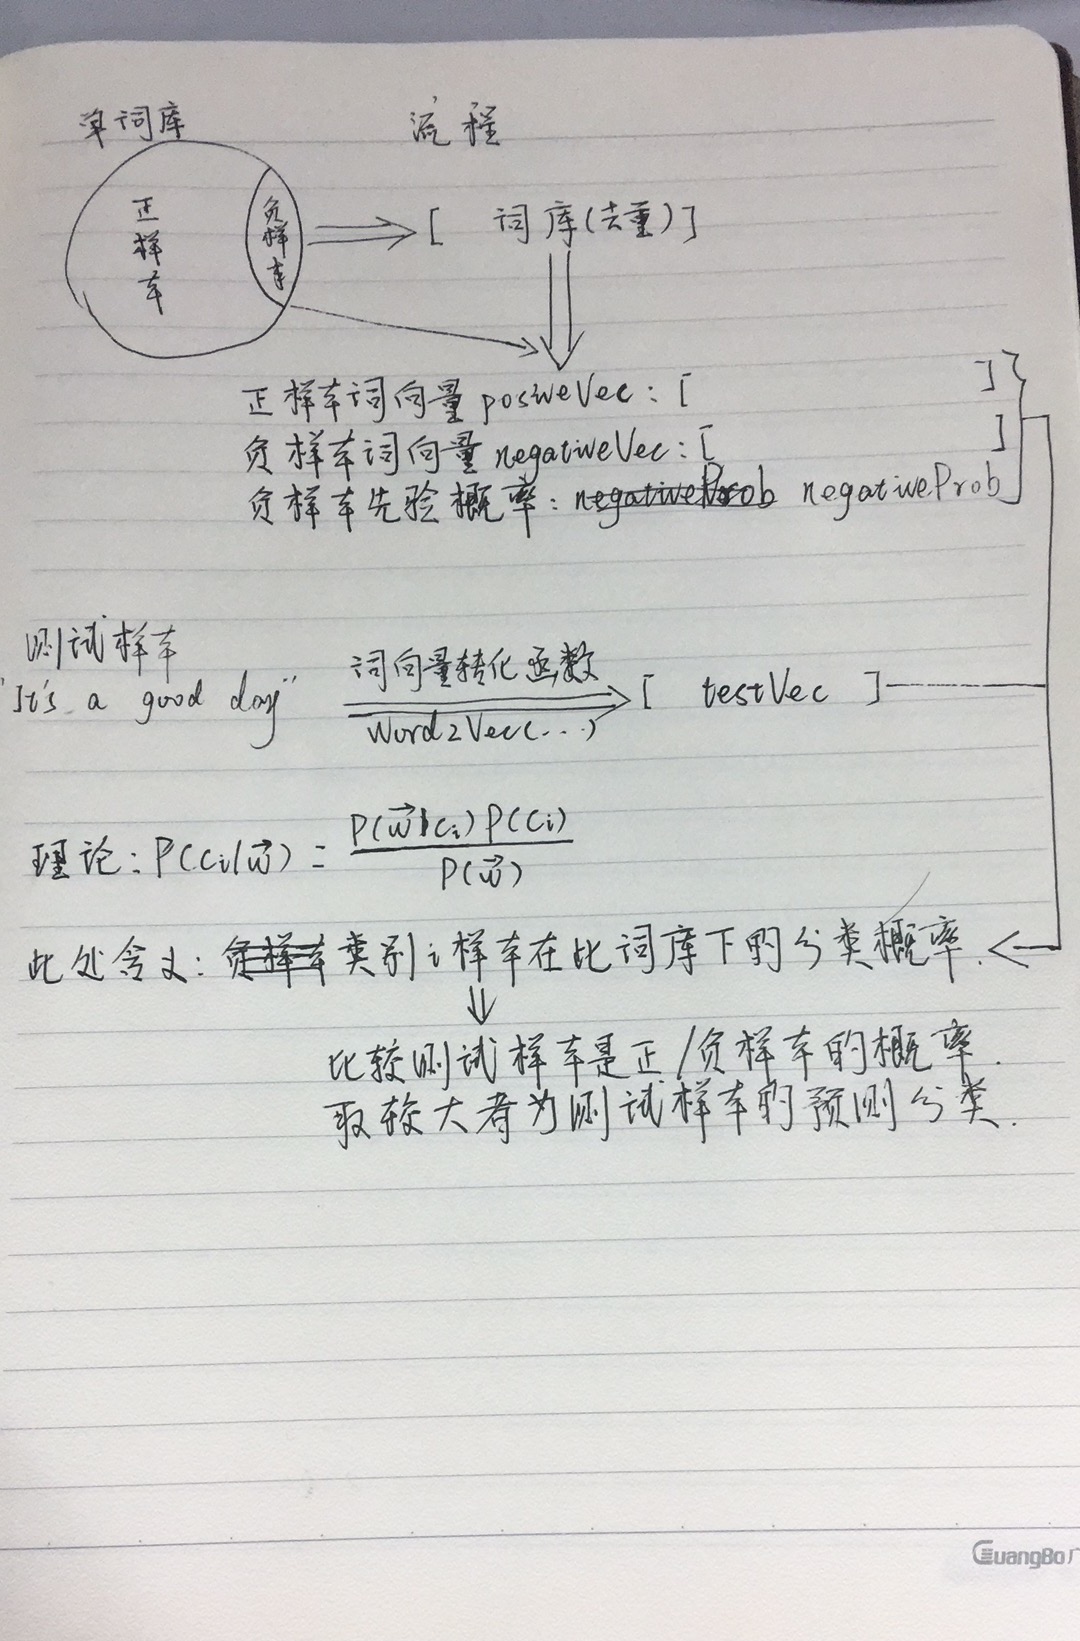 单词库 流程
正样本 负样本 [ 词库(去重) ]
正样本词向量 positiveVec: [ ]
负样本词向量 negativeVec: [ ]
负样本先验概率: negativeProb negativeProb
测试样本
"It's a good day" 词向量转化函数 [ testVec ]
Word2Vec(...)
理论: P(ci|w⃗) = P(w⃗|ci) P(ci) / P(w⃗)
此处含义: 负样本 类别i样本在此词库下的分类概率.
比较测试样本是正/负样本的概率.
取较大者为测试样本的预测分类.
GuangBo广